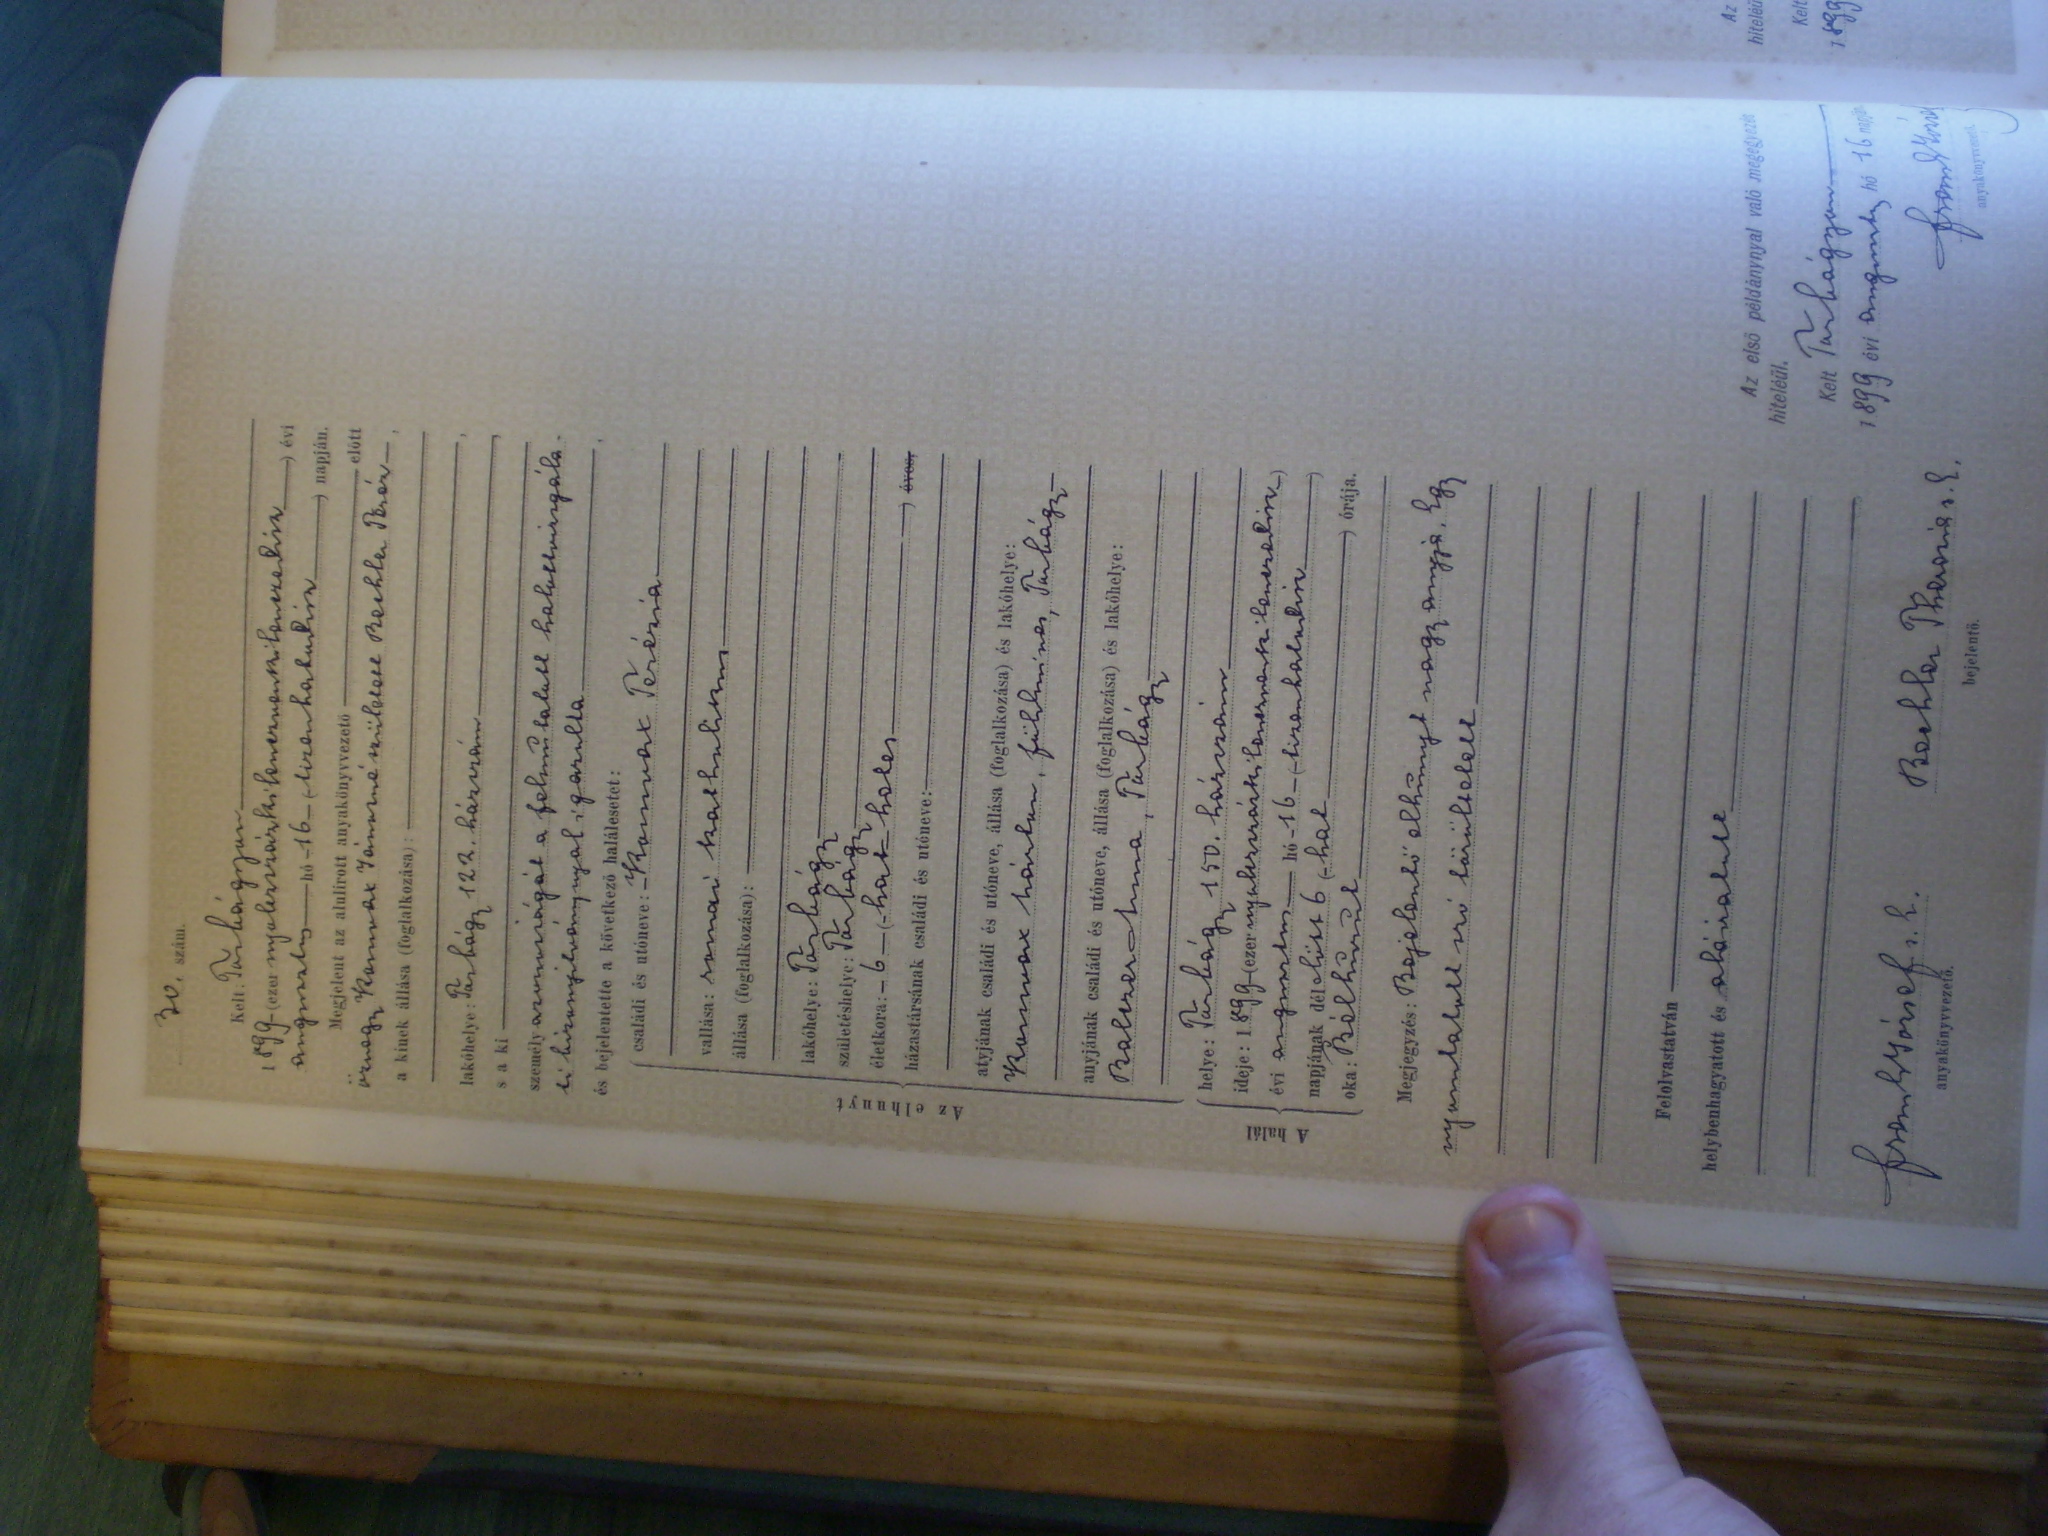 30. szám.
Kelt: Türbágyun
1899 (ezer nyolcszázkilencvenkilencedik) évi
augusztus hó 16 (tizenhatodik) napján.
Megjelent az alulirott anyakönyvvezető előtt
özvegy Jánosné született Bechler Teréz,
a kinek állása (foglalkozása):
lakóhelye: 122. házszám,
s a ki
személyazonosságát a felmutatott halottvizsgála-
ti bizonyitványnyal igazolta,
és bejelentette a következő halálesetet:
Az elhunyt
családi és utóneve: Terézia
vallása: romai katholikus
állása (foglalkozása):
lakóhelye:
születéshelye:
életkora: 6 (hat hetes) éves,
házastársának családi és utóneve:
atyjának családi és utóneve, állása (foglalkozása) és lakóhelye:
földmives,
anyjának családi és utóneve, állása (foglalkozása) és lakóhelye:
Anna,
A halál
helye: 150. házszám
ideje: 1899 (ezer nyolcszázkilencvenkilencedik)
évi augusztus hó 16 (tizenhatodik)
napjának délelőtt 6 (hat) órája.
oka: Bélhurut
Megjegyzés: Bejelentő elhúnyt nagyanyja. Egy
nyomtatott szó törültetett
Felolvastatván
helybenhagyatott és aláiratott
József s. k.
anyakönyvvezető.
Bechler Therézia s. k.
bejelentő.
Az első példánynyal való megegyezés
hiteléül.
Kelt
1899 évi augusztus hó 16 napján
anyakönyvvezető.
Az
hiteléül
Kelt
1899